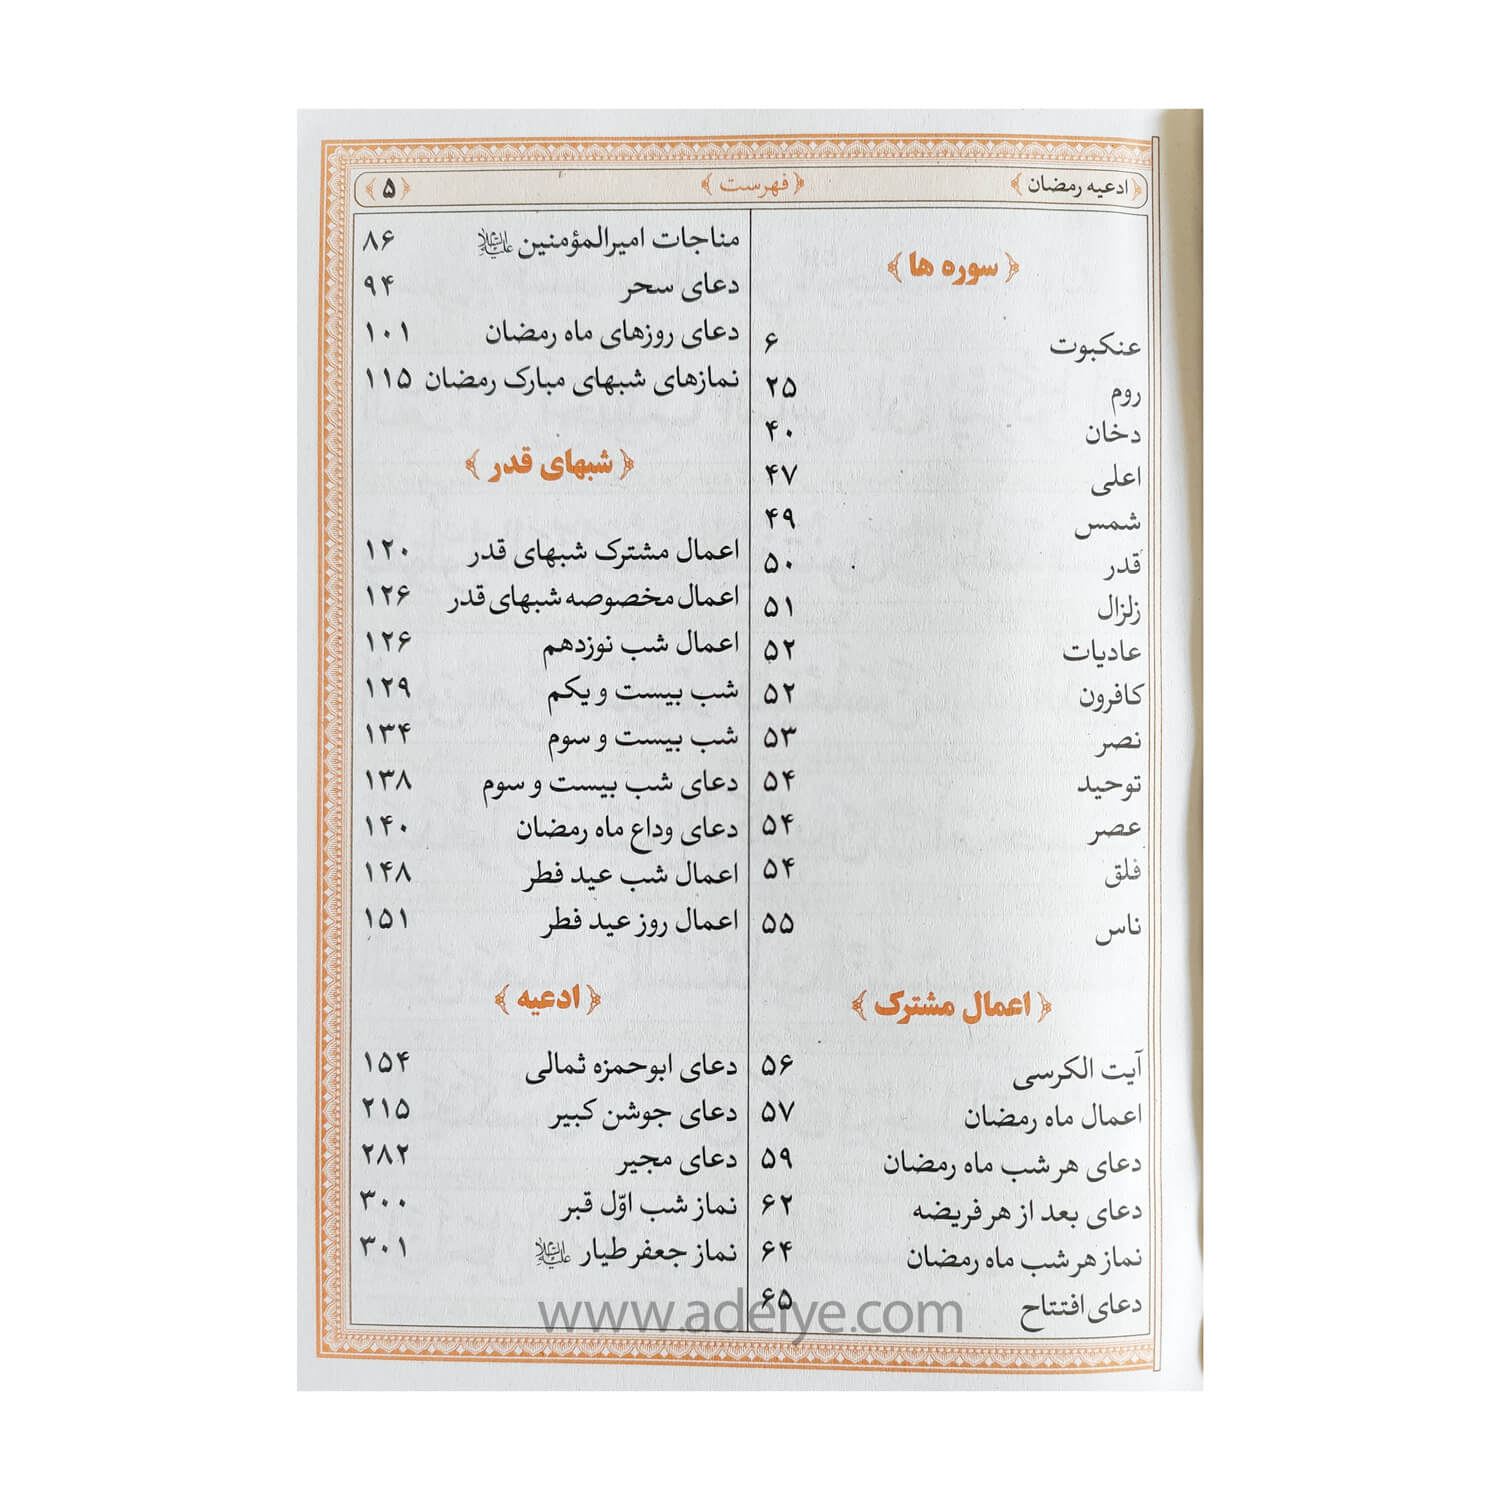 ادعیه رمضان
فهرست
۵
سوره ها
عنکبوت ۶
روم ۲۵
دخان ۴۰
اعلی ۴۷
شمس ۴۹
قدر ۵۰
زلزال ۵۱
عادیات ۵۲
کافرون ۵۲
نصر ۵۳
توحید ۵۴
عصر ۵۴
فلق ۵۴
ناس ۵۵
اعمال مشترک
آیت الکرسی ۵۶
اعمال ماه رمضان ۵۷
دعای هر شب ماه رمضان ۵۹
دعای بعد از هر فریضه ۶۲
نماز هر شب ماه رمضان ۶۴
دعای افتتاح ۶۵
مناجات امیرالمؤمنین علیه‌السلام ۸۶
دعای سحر ۹۴
دعای روزهای ماه رمضان ۱۰۱
نمازهای شبهای مبارک رمضان ۱۱۵
شبهای قدر
اعمال مشترک شبهای قدر ۱۲۰
اعمال مخصوصه شبهای قدر ۱۲۶
اعمال شب نوزدهم ۱۲۶
شب بیست و یکم ۱۲۹
شب بیست و سوم ۱۳۴
دعای شب بیست و سوم ۱۳۸
دعای وداع ماه رمضان ۱۴۰
اعمال شب عید فطر ۱۴۸
اعمال روز عید فطر ۱۵۱
ادعیه
دعای ابوحمزه ثمالی ۱۵۴
دعای جوشن کبیر ۲۱۵
دعای مجیر ۲۸۲
نماز شب اوّل قبر ۳۰۰
نماز جعفر طیار علیه‌السلام ۳۰۱
www.adeiye.com